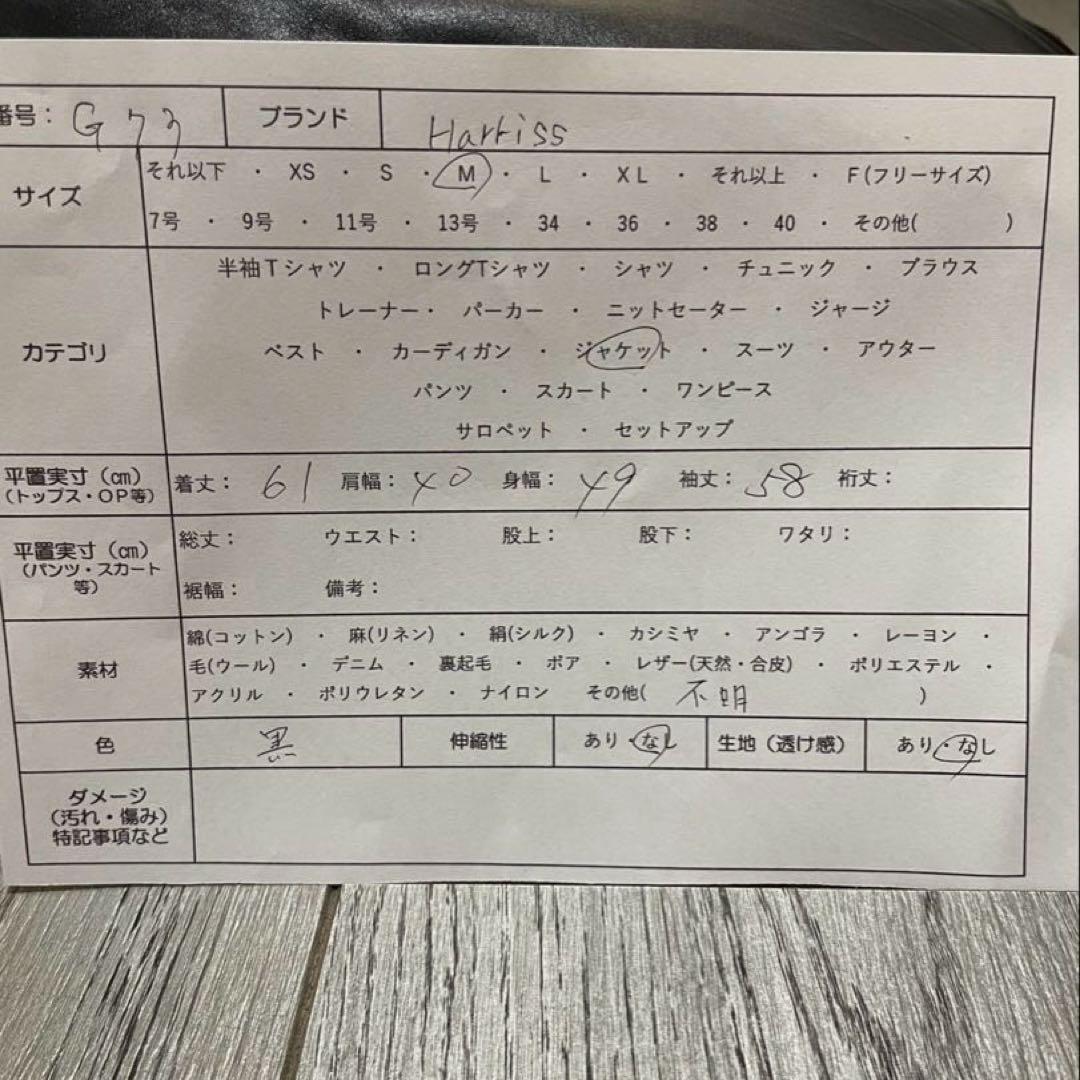 番号： G73 ブランド Harriss
サイズ それ以下 ・ XS ・ S ・ M ・ L ・ XL ・ それ以上 ・ F(フリーサイズ)
7号 ・ 9号 ・ 11号 ・ 13号 ・ 34 ・ 36 ・ 38 ・ 40 ・ その他( )
カテゴリ
半袖Tシャツ ・ ロングTシャツ ・ シャツ ・ チュニック ・ ブラウス
トレーナー・ パーカー ・ ニットセーター ・ ジャージ
ベスト ・ カーディガン ・ ジャケット ・ スーツ ・ アウター
パンツ ・ スカート ・ ワンピース
サロペット ・ セットアップ
平置実寸（㎝）
（トップス・OP等）
着丈： 61 肩幅： 40 身幅： 49 袖丈： 58 裄丈：
平置実寸（㎝）
（パンツ・スカート
等）
総丈： ウエスト： 股上： 股下： ワタリ：
裾幅： 備考：
素材
綿(コットン) ・ 麻(リネン) ・ 絹(シルク) ・ カシミヤ ・ アンゴラ ・ レーヨン ・
毛(ウール) ・ デニム ・ 裏起毛 ・ ボア ・ レザー(天然・合皮) ・ ポリエステル ・
アクリル ・ ポリウレタン ・ ナイロン その他( 不明 )
色 黒 伸縮性 あり・なし 生地（透け感） あり・なし
ダメージ
（汚れ・傷み）
特記事項など